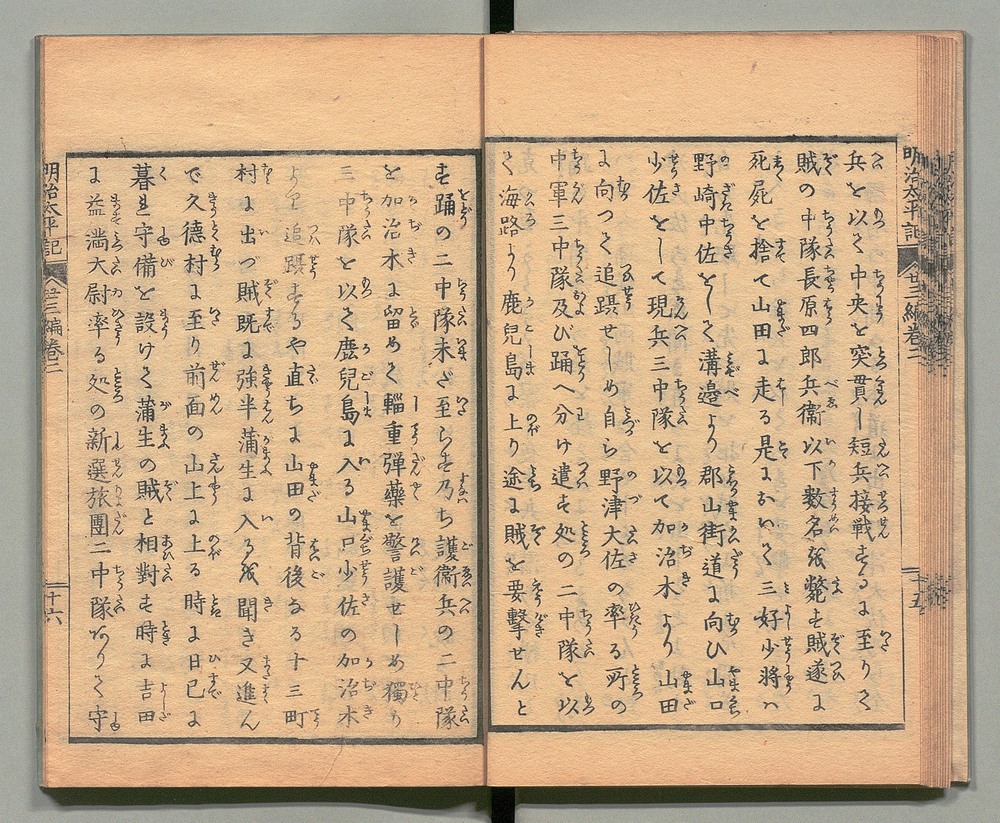 明治太平記　廿三編巻二
兵を以て中央を突貫し短兵接戦するに至りて
賊の中隊長原四郎兵衞以下数名を斃す賊遂に
死屍を捨て山田に走る是において三好少将ハ
野崎中佐をして溝邉より郡山街道に向ひ山口
少佐をして現兵三中隊を以て加治木より山田
に向つて追躡せしめ自ら野津大佐の率る所の
中軍三中隊及び踊へ分け遣す処の二中隊を以
て海路より鹿兒島に上り途に賊を要撃せんと
す踊の二中隊未だ至らず乃ち護衞兵の二中隊
を加治木に留めて輜重弾藥を警護せしめ獨り
三中隊を以て鹿兒島に入る山口少佐の加治木
より追躡するや直ちに山田の背後なる十三町
村に出づ賊既に強半蒲生に入るを聞き又進ん
で久徳村に至り前面の山上に上る時に日已に
暮る守備を設けて蒲生の賊と相對す時に吉田
に益満大尉率る処の新選旅團二中隊ありて守
明治太平記　廿三編巻二　十六